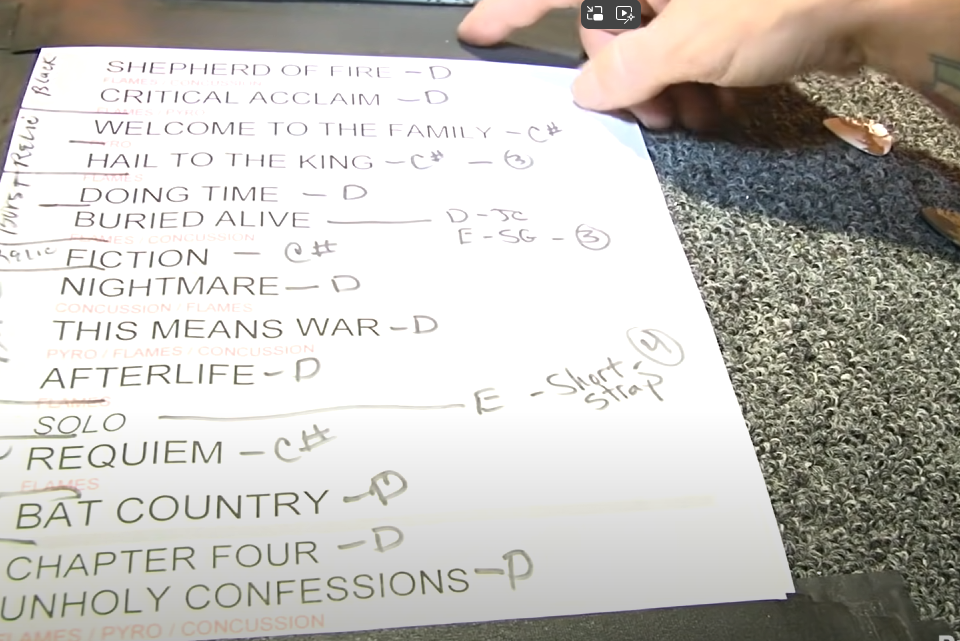 SHEPHERD OF FIRE – D
FLAMES / CONCUSSION
CRITICAL ACCLAIM – D
FLAMES / PYRO
WELCOME TO THE FAMILY – C#
PYRO
HAIL TO THE KING – C# – ③
FLAMES
DOING TIME – D
BURIED ALIVE — D-JC
E-SG – ③
FLAMES CONCUSSION
FICTION – C#
NIGHTMARE – D
CONCUSSION / FLAMES
THIS MEANS WAR – D
PYRO / FLAMES / CONCUSSION
AFTERLIFE – D
FLAMES
SOLO — E - Short strap - ④
REQUIEM – C#
FLAMES
BAT COUNTRY – D
CHAPTER FOUR – D
UNHOLY CONFESSIONS – D
FLAMES / PYRO / CONCUSSION
Black
Burst Relic
Relic